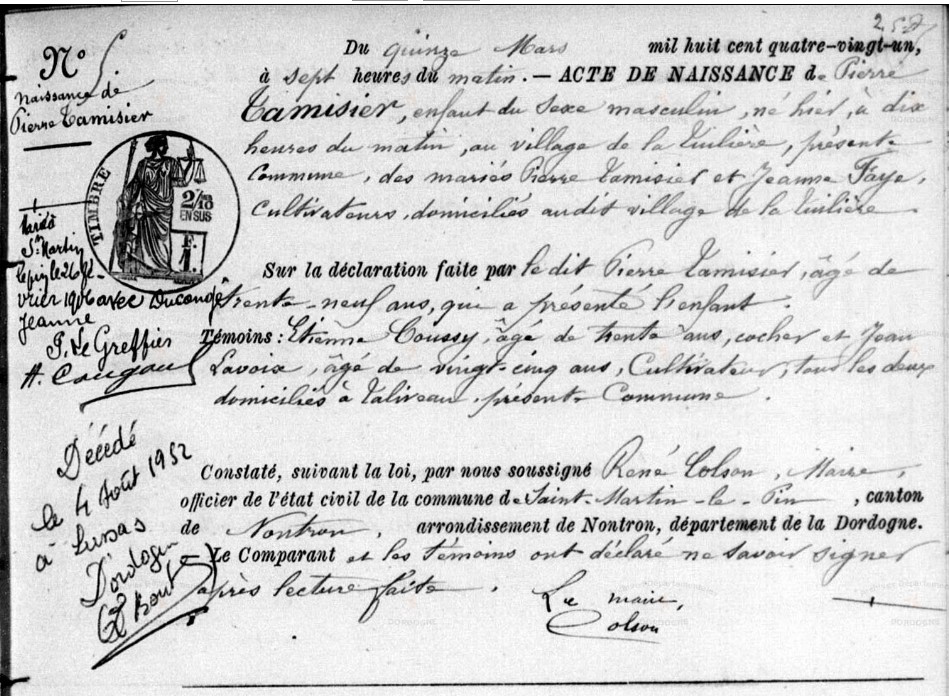 257
N° 5
Naissance de
Pierre Tamisier
TIMBRE
2/10
EN SUS
F.
1.
Marié à
St Martin
le pin le 26 fé-
vrier 1906 avec Ducongé
Jeanne
P. Le Greffier
Décédé
le 4 Août 1952
à Lunas
Dordogne
Du quinze Mars mil huit cent quatre-vingt-un,
à sept heures du matin. — ACTE DE NAISSANCE de Pierre
Tamisier, enfant du Sexe masculin, né hier, à dix
heures du matin, au village de la Tuilière, présente
Commune, des mariés Pierre Tamisier et Jeanne Faye,
Cultivateurs, domiciliés audit village de la Tuilière
Sur la déclaration faite par le dit Pierre Tamisier, âgé de
trente-neuf ans, qui a présenté l'enfant.
Témoins : Etienne Coussy, âgé de trente ans, cocher et Jean
Lavoix, âgé de vingt-cinq ans, Cultivateur, tous les deux
domiciliés à Taliveau, présente Commune.
Constaté, suivant la loi, par nous soussigné René Colson, Maire,
officier de l'état civil de la commune de Saint-Martin-le-Pin, canton
de Nontron, arrondissement de Nontron, département de la Dordogne.
— Le Comparant et les témoins ont déclaré ne savoir signer
après lecture faite.
Le maire,
Colson